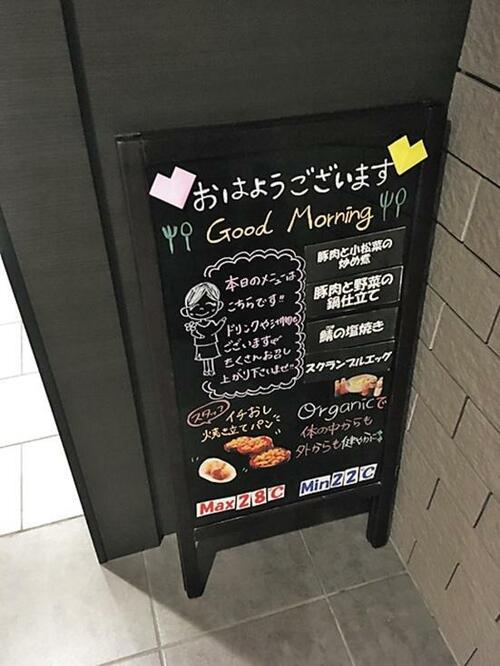 おはようございます
Good Morning
本日のメニューは
こちらです!!
ドリンクや汁物も
ございますので
たくさんお召し
上がり下さいませ!!
豚肉と小松菜の
炒め煮
豚肉と野菜の
鍋仕立て
鯖の塩焼き
スクランブルエッグ
スタッフ イチおし
焼き立てパン
Organicで
体の中からも
外からも健やかに
Max28℃
Min22℃